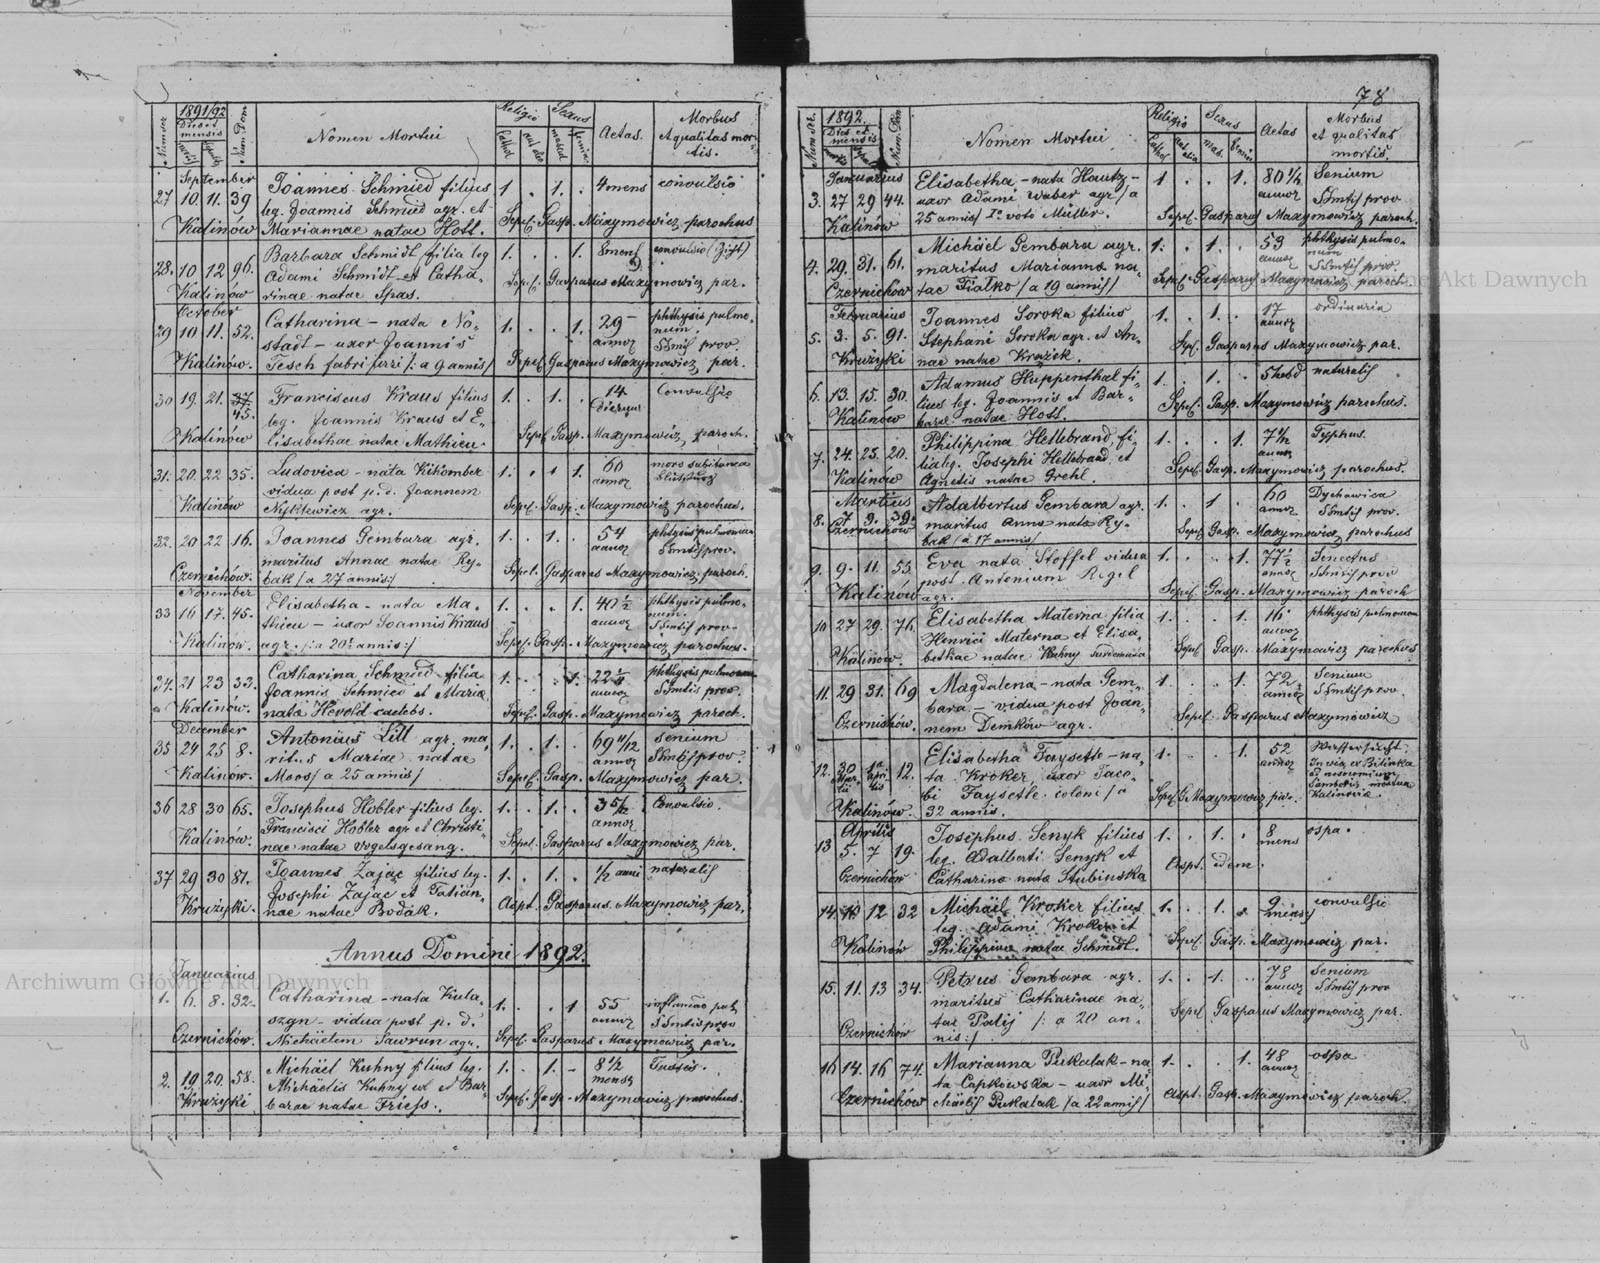 78
1891/92
Num ser.
Dies et mensis
Num Dom.
Nomen Mortui
Religio
Sexus
Cathol
aut alia
mascul
femin.
Aetas.
Morbus et qualitas mortis.
September
27 10. 11. 39
Kalinów
Joannes Schmied filius
leg. Joannis Schmied agr. et
Mariannae natae Hott.
1 . 1. .
4 mens
convulsio
Sepel. Gasp. Maxymowicz parochus
28. 10 12 96.
Kalinów
Barbara Schmidt filia leg
Adami Schmidt et Catha-
rinae natae Spas.
1. . . 1.
8 mens
convulsio
Sepel. Gasparus Maxymowicz par.
October
29 10 11. 52.
Kalinów.
Catharina - nata No-
stadt - uxor Joannis
Tesch fabri ferri /: a 9 annis/
1. . . 1.
29 -
annor
phthysis pulmo-
num.
SSmtis prov.
Sepel. Gasparus Maxymowicz par.
30 19. 21. 37
45.
Kalinów
Franciscus Kraus filius
leg. Joannis Kraus et E-
lisabethae natae Mathieu.
1 . 1. .
14.
dierum
Convulsio
Sepel Gasp. Maxymowicz, paroch.
31. 20 22 35.
Kalinów
Ludovica - nata
vidua post p. d. Joannem
agr.
1. . . 1.
60
annor
mors subitanea
Sepel. Gasp. Maxymowicz parochus.
32. 20 22 16.
Czernichów.
Joannes Gembara agr.
maritus Annae natae Ry-
bak /a 27 annis:/
1. . 1. .
54
annor
phthysis pulmonum
SSmtis prov.
Sepel. Gasparus Maxymowicz, paroch.
November
33 16 17. 45.
Kalinów.
Elisabetha - nata Ma-
thieu - uxor Joannis Kraus
agr. /: a 20 annis:/
1. . . 1.
40 1/2
annor
phthysis pulmo-
num.
SSmtis prov.
Sepel. Gasp. Maxymowicz parochus.
34. 21 23 33.
Kalinów.
Catharina Schmied filia
Joannis Schmied et Maria
nata Hevold caelebs.
1. . . 1.
22
annor
phthysis pulmonum
SSmtis prov.
Sepel. Gasp. Maxymowicz paroch.
December
35 24 25 8.
Kalinów.
Antonius Lill agr. ma-
ritus Mariae natae
Moos /a 25 annis/
1. . 1. .
69 11/12
annor
Senium
SSmtis prov.
Sepel. Gasp. Maxymowicz par.
36 28 30 65.
Kalinów.
Josephus Hobler filius leg.
Francisci Hobler agr et Christi-
nae natae Vogelsgesang.
1. . 1. .
3 5/12
annor
Convulsio.
Sepel. Gasparus Maxymowicz par.
37 29 30 81.
Krużyki.
Joannes Zając filius leg.
Josephi Zając et Tatian-
nae natae Bodak.
1. . 1. .
1/2 anni
naturalis
Aspt. Gasparus. Maxymowicz par.
Annus Domini 1892.
Januarius
1. 6. 8. 32.
Czernichów.
Catharina - nata Kula-
szgn - vidua post p. d.
Michaëlem Sawrun agr.
1. . . 1
55
annor
SSmtis prov
Sepel. Gasparus Maxymowicz par.
2. 19 20. 58.
Krużyki
Michaël Kuhny filius leg.
Michaëlis Kuhny et Bar-
barae natae Friess.
1. . 1. -
8 1/2
mensr
Tussis.
Sepel. Gasp. Maxymowicz parochus.
1892.
Num ser.
Dies et mensis
Num. Dom
Nomen Mortui
Religio
Sexus
Cathol
aut alia
mas.
femin
Aetas
Morbus
et qualitas
mortis.
Januarius
3. 27 29 44.
Kalinów
Elisabetha - nata Hautz -
uxor Adami Waber agr /a
25 annis/ I° voto Müller.
1 . . 1.
80 1/2
annor
Senium
SSmtis prov
Sepel. Gasparus Maxymowicz paroch.
4. 29. 31. 61.
Czernichów
Michaël Gembara agr.
maritus Marianna na-
tae Fiałko /a 19 annis/
1. . 1. .
53
annor
phthysis pulmo-
num
SSmtis prov.
Sepel Gasparus Maxymowicz paroch.
Februarius
5. 3. 5. 91.
Krużyki
Joannes Soroka filius
Stephani Soroka agr. et An-
nae natae Krążek.
1. . 1. .
17
annor
ordinaria
Sepel. Gasparus Maxymowicz par.
6. 13. 15. 30.
Kalinów
Adamus Huppenthal fi-
lius leg. Joannis et Bar-
barae natae Hott.
1. . 1. .
5 hebd
naturalis
Sepel. Gasp. Maxymowicz parochus.
7. 24. 25. 20.
Kalinów
Philippina Hellebrand, fi-
lia leg. Josephi Hellebrand et
Agnetis natae Grehl.
1. . . 1.
7 1/2
annor
Typhus.
Sepel. Gasp. Maxymowicz, parochus.
Martius
8. 7 9. 39.
Czernichów
Adalbertus Gembara agr.
maritus Anna nata Ry-
bak /a 17 annis/
1. . 1 .
60
annor
Dychawica
SSmtis prov.
Sepel Gasp. Maxymowicz parochus
9. 9. 11. 55.
Kalinów
Eva nata Stoffel vidua
post Antonium Rigel
agr.
1. . . 1.
77 1/2
annor
Senectus
SSmtis prov
Sepel. Gasp. Maxymowicz paroch
10 27 29. 76.
Kalinów.
Elisabetha Materna filia
Henrici Materna et Elisa-
bethae natae Kuhny
1. . . 1.
16
annor
phthysis pulmonum
Sepel Gasp. Maxymowicz parochus
11. 29 31. 69
Czernichów.
Magdalena - nata Gem-
bara - vidua post Joan-
nem Demków agr.
1. . . 1.
72
annor
Senium
SSmtis prov.
Sepel. Gasparus Maxymowicz
12. 30 1a 12.
Martii Aprilis
Kalinów.
Elisabetha Faysette - na-
ta Kroker, uxor Jaco-
bi Faysette coloni /a
32 annis.
1. . . 1.
52
annor
Wassersucht.
In via ex Bilinka
Kalinovia.
Sepel G Maxymowicz par.
Aprilis
13 5. 7 19.
Czernichów
Josephus Senyk filius
leg. Adalberti Senyk et
Catharina nata Stubinska
1. . 1. .
8
mens
ospa.
Aspt. idem.
14. 10 12 32
Kalinów
Michaël Kroker filius
leg. Adami Kroker et
Philippina natae Schmidt.
1. . 1. .
9
mens
convulsio
Sepel. Gasp. Maxymowicz par.
15. 11. 13 34.
Czernichów
Petrus Gembara agr.
maritus Catharinae na-
tae Palij /: a 20 an-
nis:/
1. . 1. .
78
annor
Senium
SSmtis prov
Sepel Gasparus Maxymowicz par.
16 14. 16 74.
Czernichów
Marianna Pukalak - na-
ta Capkowska - uxor Mi-
chaëlis Pukalak /a 22 annis/
1. . . 1.
48
annor
ospa
Aspt. Gasp. Maxymowicz paroch.
Archiwum Główne Akt Dawnych
Archiwum Główne Akt Dawnych